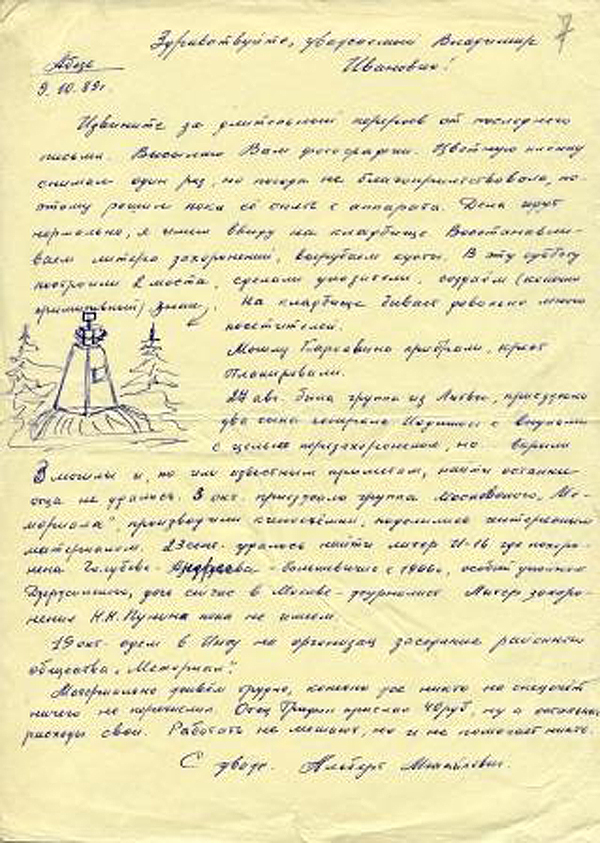 7
Здравствуйте, уважаемый Владимир
Иванович!
Абезь
9.10.89г.
Извините за длительный перерыв от последнего
письма. Высылаю Вам фотографии. Цветную пленку
снимал один раз, но погода не благоприятствовала, по-
этому решил пока её снять с аппарата. Дела идут
нормально, я имею ввиду на кладбище Восстанавли-
ваем литера захоронений, вырубаем кусты. В эту субботу
построили 2 моста, сделали указатели, создаём (конечно
примитивный) знак. На кладбище бывает довольно много
посетителей.
Могилу Карсавина прибрали, крест
планировали.
24 авг. была группа из Литвы, приезжало
два сына генерала с внуками
с целью перезахоронения, но вскрыли
3 могилы и, по им известным приметам, найти останки
отца не удалось. 3 окт. приезжала группа Московского „Ме-
мориала", производили киносъёмки, поделились интересным
материалом. 23 сент. удалось найти литер И-16 где похоро-
нена Голубева - Андреева - большевичка с 1906г,
Дзержинского, дочь сейчас в Москве - журналист Литер захоро-
нения Н.Н. Пунина пока не имеем.
19 окт. едем в Инту на организац заседание районного
общества „Мемориал".
Материально живём трудно, конечно уже никто на спецсчёт
ничего не перечислил. Отец Трифон прислал 40 руб, ну а остальные
расходы свои. Работать не мешают, но и не помогает никто.
С уваж. Альберт Михайлович.